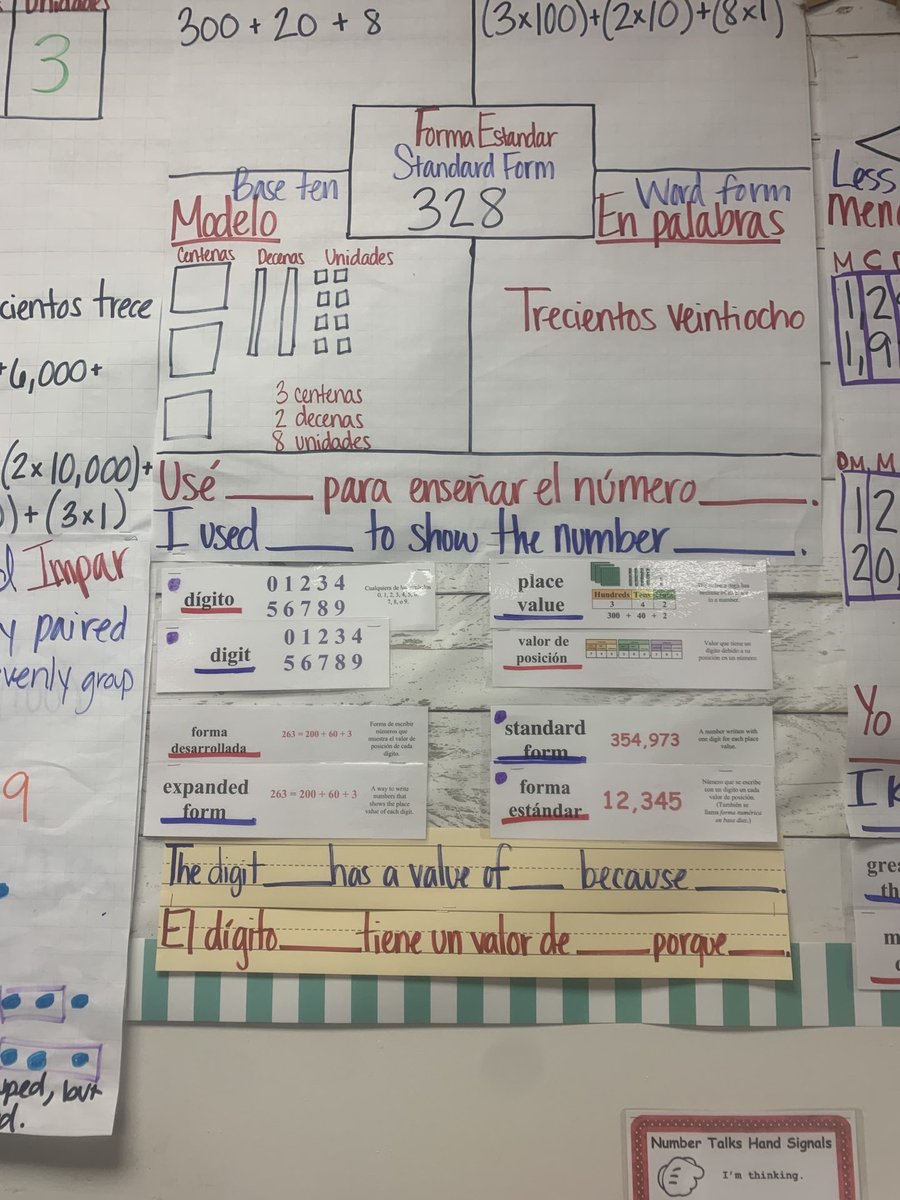 Unidades
3
300 + 20 + 8
(3×100)+(2×10)+(8×1)
Forma Estandar
Standard Form
328
Base ten
Modelo
Centenas Decenas Unidades
3 centenas
2 decenas
8 unidades
Word form
En palabras
Trecientos veintiocho
Usé ____ para enseñar el número ____.
I used ____ to show the number ____.
cientos trece
+6,000+
(2×10,000)+
)+(3×1)
Impar
y paired
venly group
9
uped, but
d.
dígito
0 1 2 3 4
5 6 7 8 9
Cualquiera de los
0, 1, 2, 3, 4, 5, 6,
7, 8, o 9.
digit
0 1 2 3 4
5 6 7 8 9
place
value
Hundreds Tens Ones
3 4 2
300 + 40 + 2
valor de
posición
Valor que tiene un
dígito debido a su
posición en un número.
forma
desarrollada
263 = 200 + 60 + 3
Forma de escribir
números que
muestra el valor de
posición de cada
dígito.
expanded
form
263 = 200 + 60 + 3
A way to write
numbers that
shows the place
value of each digit.
standard
form
354,973
A number written with
one digit for each place
value.
forma
estándar
12,345
Número que se escribe
con un dígito en cada
valor de posición.
(También se
llama forma numérica
en base diez.)
The digit ____ has a value of ____ because ____.
El dígito ____ tiene un valor de ____ porque ____.
Less
Men
M C D
1,2
1,9
DM M
12
20,
Yo
I k
grea
th
m
Number Talks Hand Signals
I'm thinking.